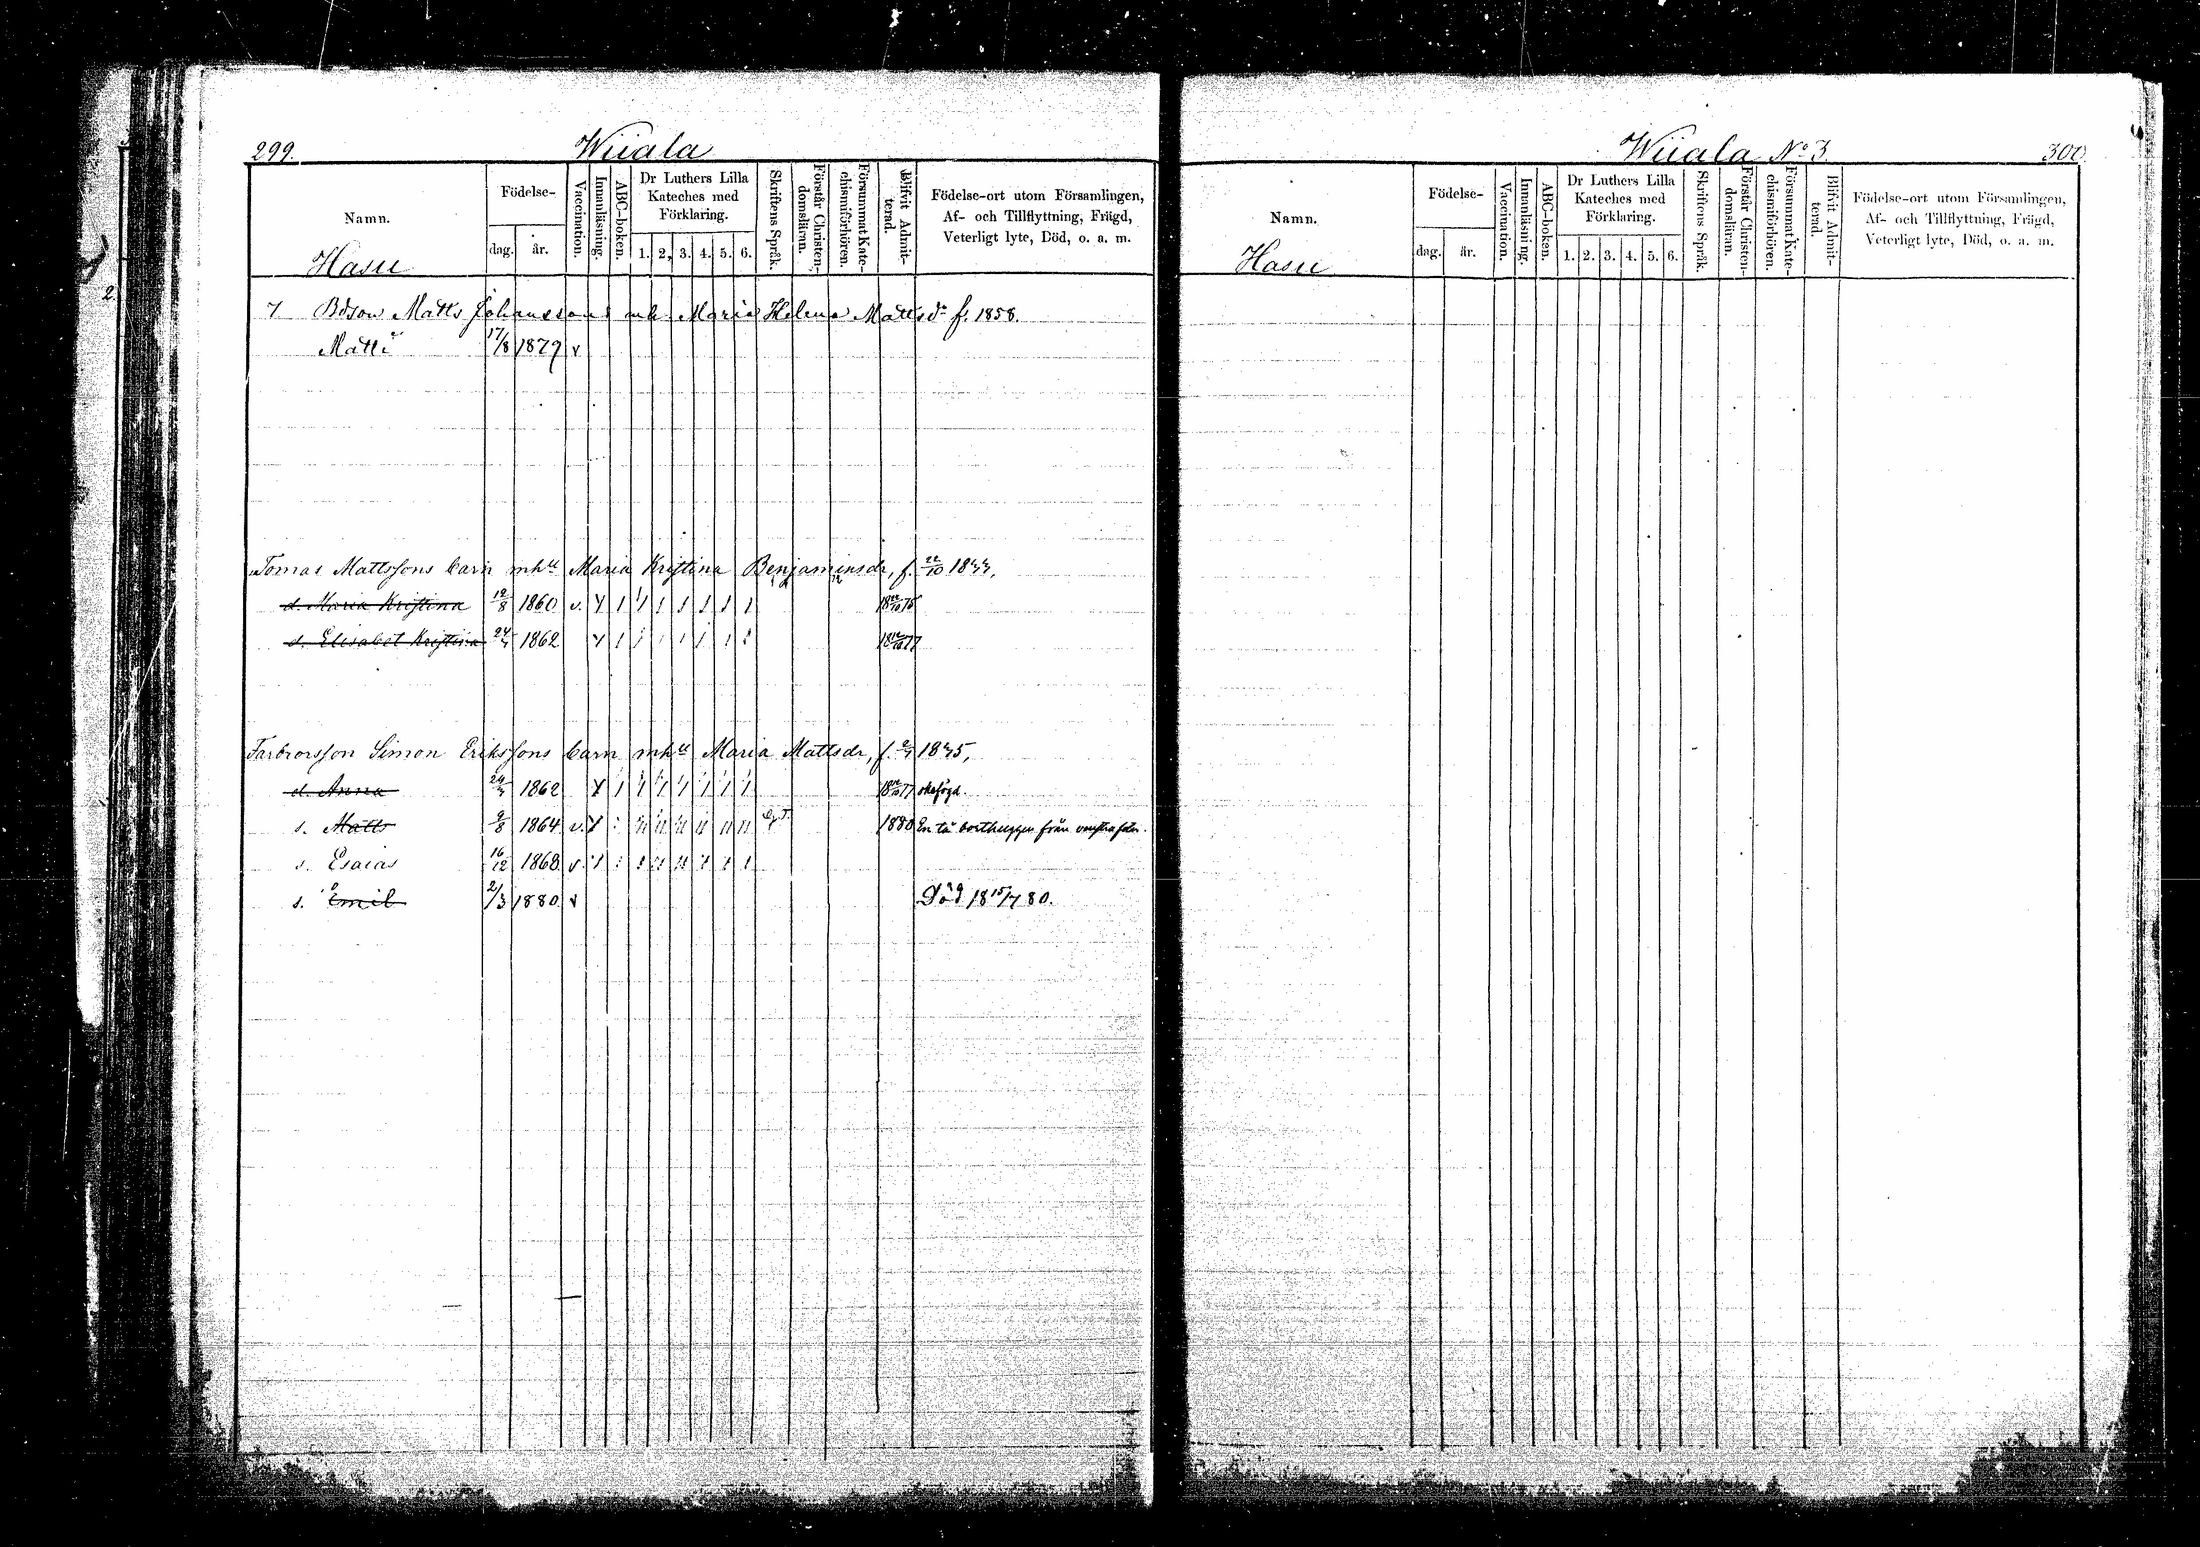 299.
Wiiala
Namn.
Födelse-
dag.
år.
Vaccination.
Innanläsning.
ABC-boken.
Dr Luthers Lilla
Kateches med
Förklaring.
1. 2. 3. 4. 5. 6.
Skriftens Språk.
Förstår Christen-
domsläran.
Försummat Kate-
chismiförhören.
Blifvit Admit-
terad.
Födelse-ort utom Församlingen,
Af- och Tillflyttning, Frägd,
Veterligt lyte, Död, o. a. m.
Hasu
2.
7 Bdson Matts Johanssons mh. Maria Helena Mattsdr f. 1858.
Matti 17/8 1879 v
Tomas Mattssons barn mhu Maria Kristina Benjaminsdr, f. 22/10
d. Maria Kristina 12/8 1860 v.
d. Elisabet Kristina 1862
Farbrorsson Simon Erikssons barn mhu Maria Mattsdr, f.
d. Anna 1862
s. Matts 9/8 1864 v. 1880 En tå borthuggen från venstra foten.
s. Esaias 16/12 1868 v.
s. Emil 2/3 1880 v Död 18 15/7 80.
Wiiala No 3
300
Namn.
Födelse-
dag.
år.
Vaccination.
Innanläsning.
ABC-boken.
Dr Luthers Lilla
Kateches med
Förklaring.
1. 2. 3. 4. 5. 6.
Skriftens Språk.
Förstår Christen-
domsläran.
Försummat Kate-
chismiförhören.
Blifvit Admit-
terad.
Födelse-ort utom Församlingen,
Af- och Tillflyttning, Frägd,
Veterligt lyte, Död, o. a. m.
Hasu